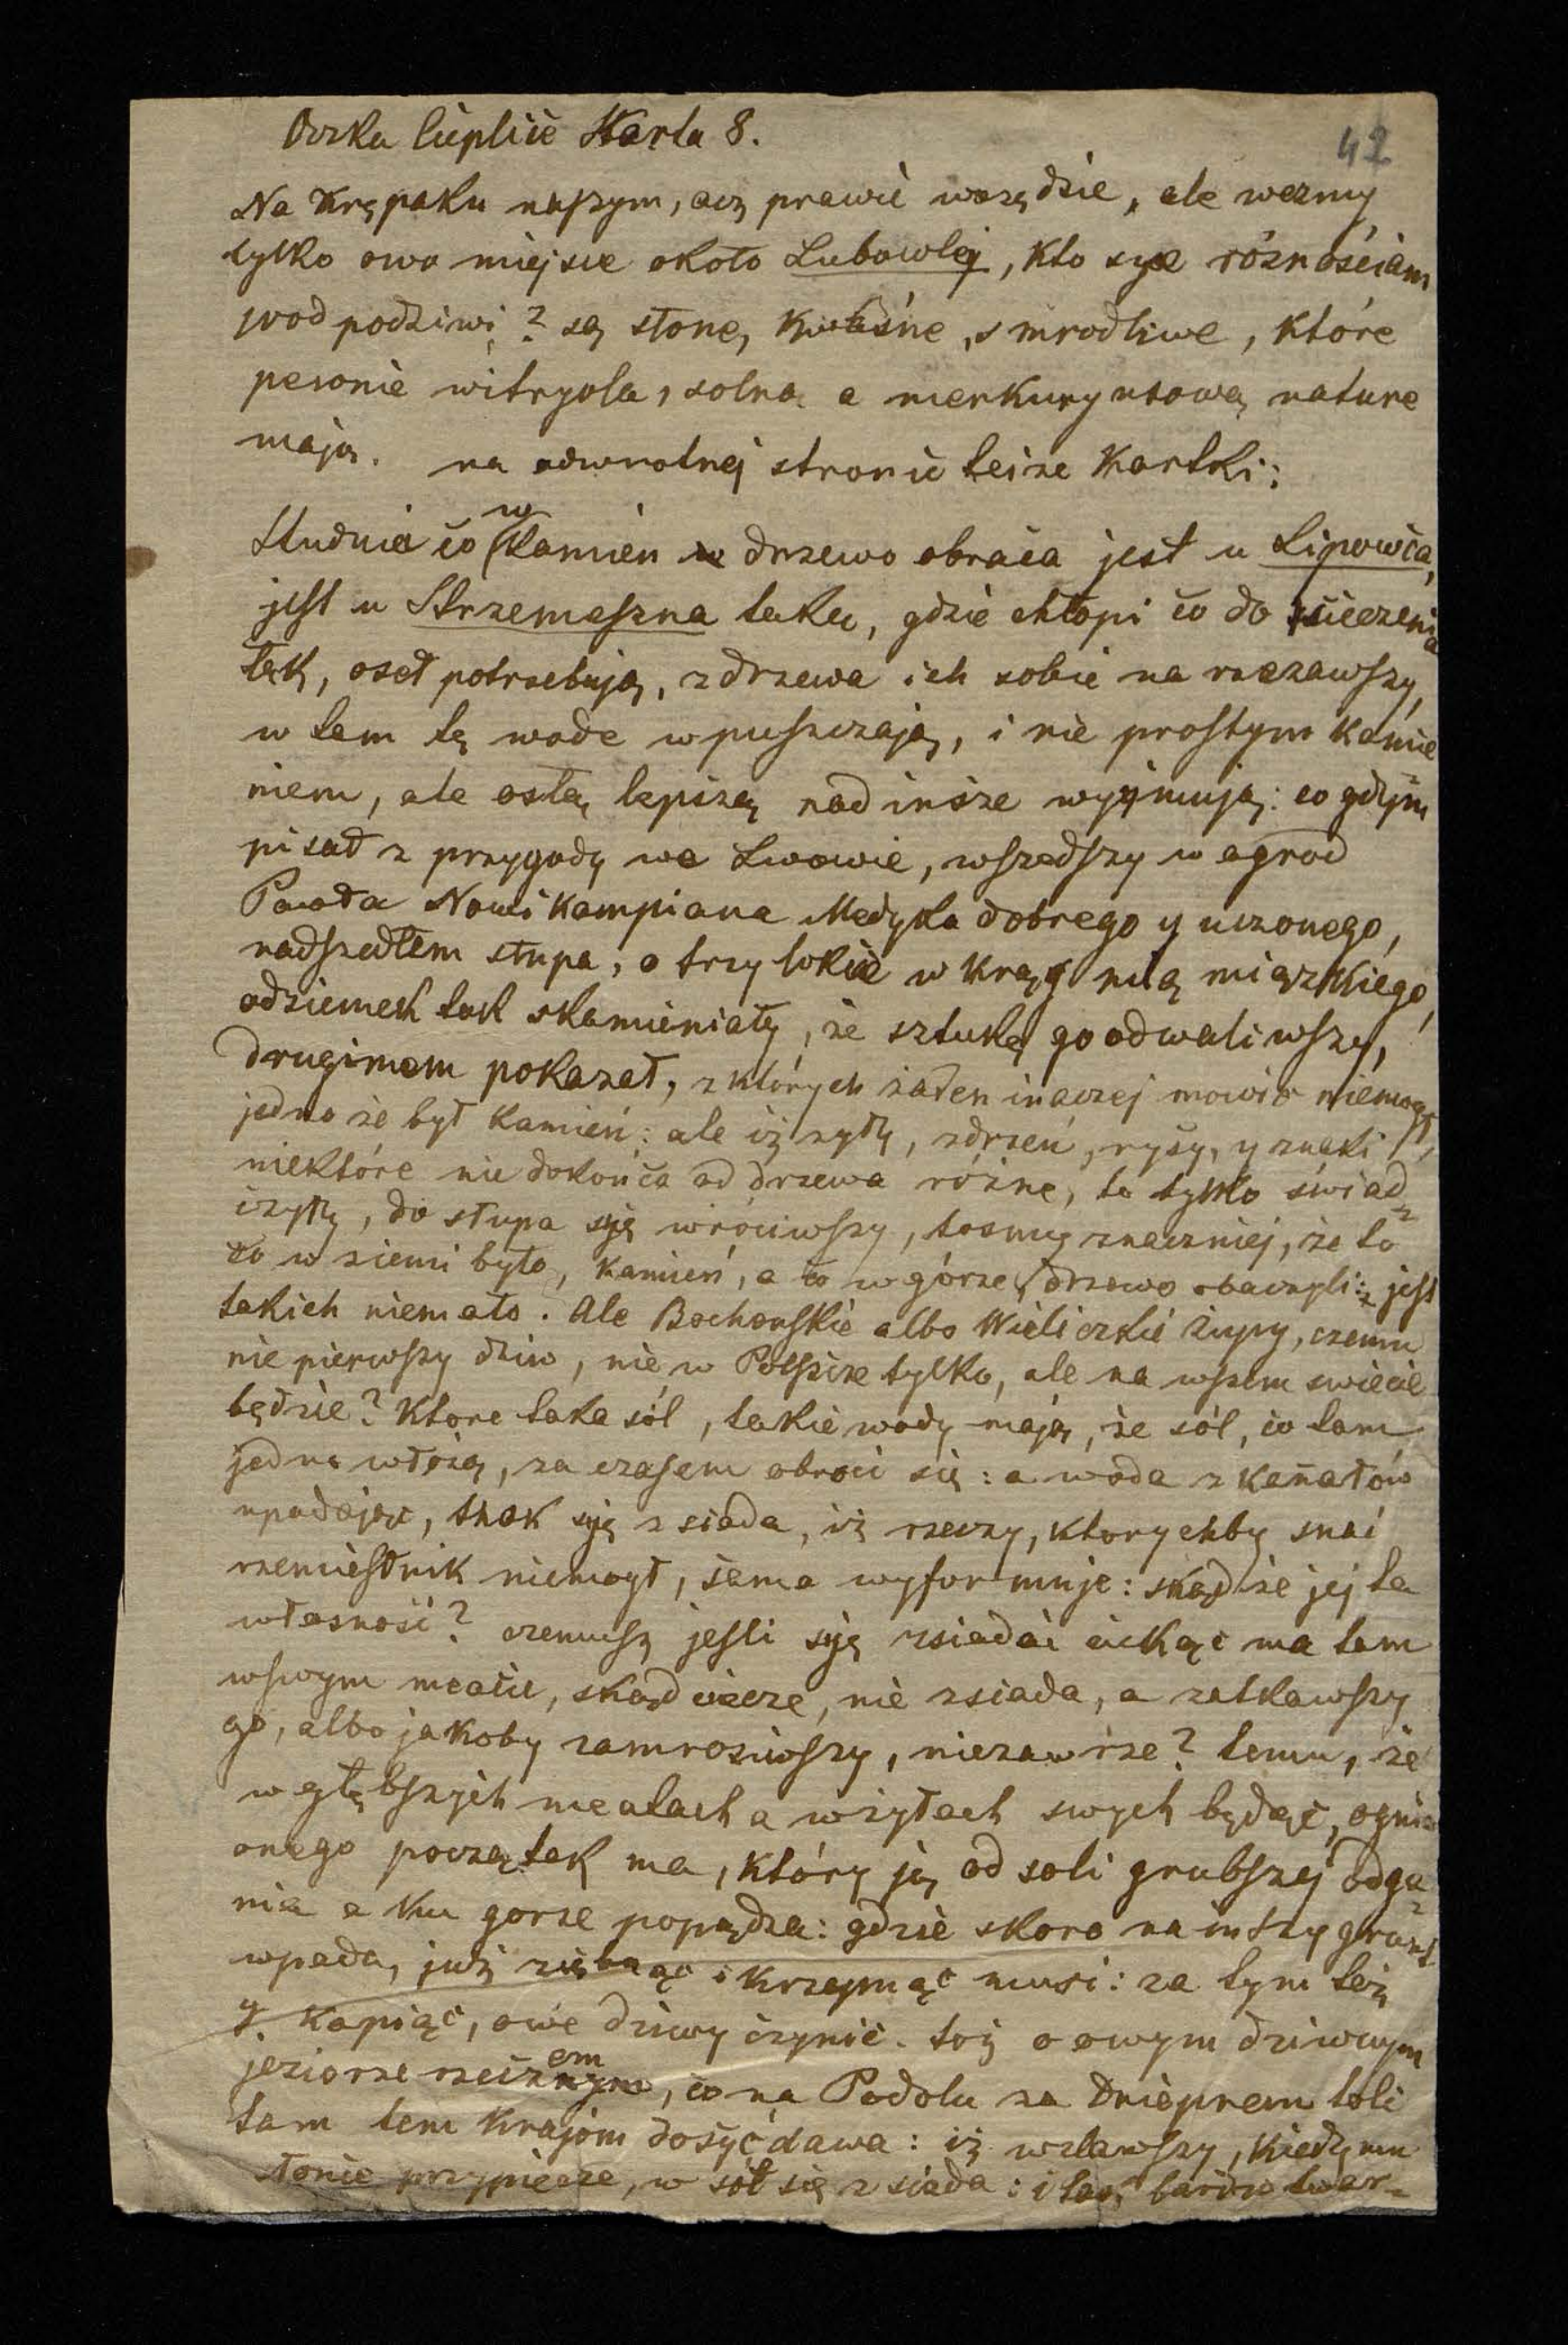 Oczka Cieplice Karta 8.
42
Na Krępaku naszym, acz prawie wszędzie, ale wezmy
tylko owo miejsce około Lubowlej, kto sye różnościam
wod podziwi? są słone, kwaśne, smrodliwe, które
pewnie witryola, solną a merkuryusową nature
mają. na odwrotnej stronie teize kartki:
Studnia co w kamien drzewo obraca jest u Lipowca,
jest u Strzemeszna taka, gdzie chłopi co do sieczenia
łąk, oseł potrzebują, z drzewa ich sobie na rzezawszy,
w tem tę wode wpuszczają, i nie prostym kamie
niem, ale osłą lepszą nad insze wyymują: co gdym
pisał z przygody we Lwowie, wszedszy w ogrod
Pawła Nowikampiana Medyka dobrego y uczonego,
nadszedłem słupa, o trzy łokcie w krąg miązkiego,
odziemek tak skamieniały, że sztukę go odwaliwszy,
drugimem pokazał, z których żaden inaczej mowić niemogł,
jedno że był kamień: ale iż żyły, zdrzeń, rysy, y znaki
niektóre nie dokońca od drzewa różne, to tylko świad
czyły, do słupa się wróciwszy, tosmy znaczniej, że to
co w ziemi było, kamień, a co w górze, drzewo obaczyli: jest
takich niemało. Ale Bochenskie albo Wieliczkie żupy, czemu
nie pierwszy dziw, nie w Polszcze tylko, ale na wszem swiecie
będzie? Ktore taka sól, takie wody mają, że sól, co tam
jedno włożą, za czasem obroci się: a woda z kanałów
upadając, thak się zsiada, iż rzeczy, ktorychby snać
rzemiesłnik niemogł, sama wyformuje: skądże jej ta
własność? czemusz jesli się zsiadać ciekąc ma tam
wswym meacie, skąd ciecze, nie zsiada, a zatkawszy
go, albo jakoby zamroziwszy, niezawrze? temu, że
w głębszych meatach a w żyłach swych będąc, ognia
onego początek ma, który ją od soli grubszej odga
nia a ku gorze popądza: gdzie skoro na inszy grunt
wpada, już ziębnąc i krzepnąc musi: za tym też
y kapiąc, owe dziwy czynić. toż o owym dziwnym
jeziorze rzeczem, co na Podolu za Dnieprem soli
tam tem krajom dosyć dawa: iż wzlawszy, kiedy mu
słonie przypiecze, w sól się zsiada: i tak bardzo twar-